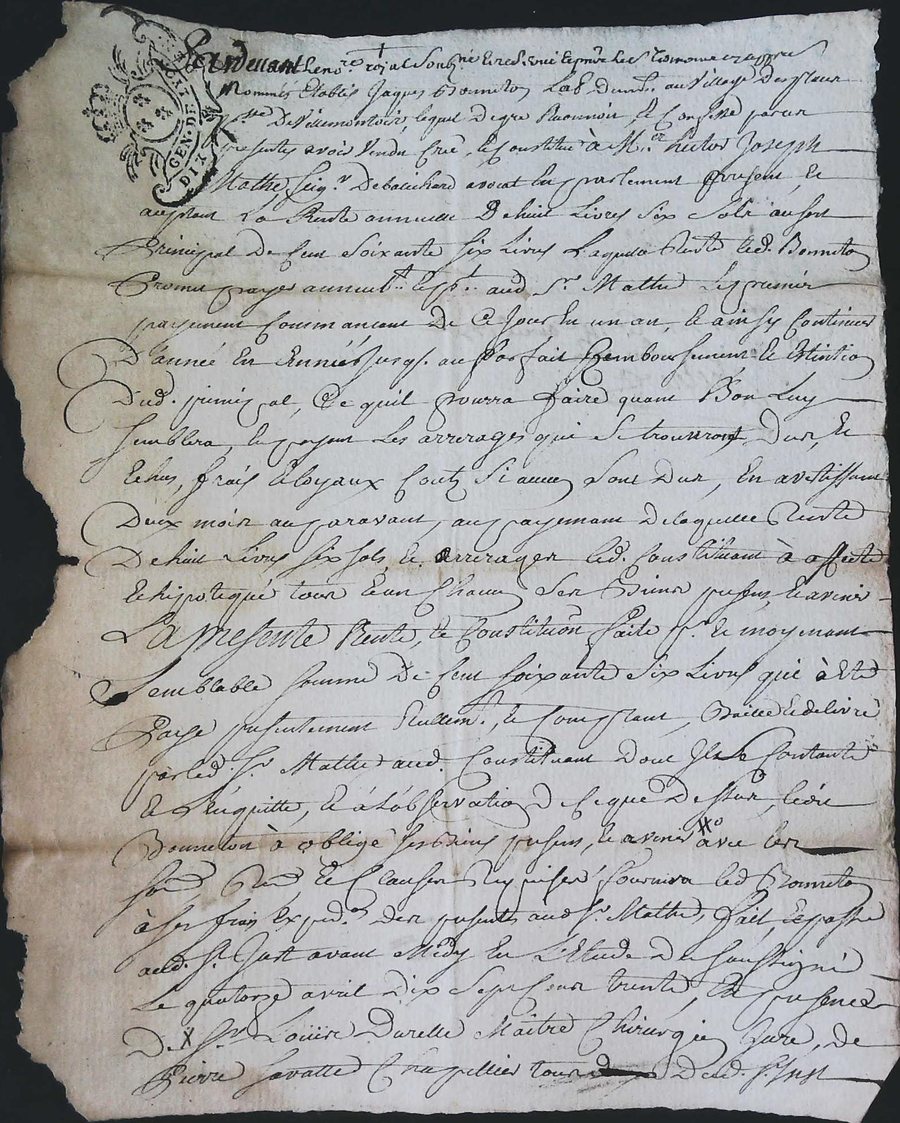 GEN. DE
DIX
Par devant le no.re royal
nommés Etably Jaques Bonneton Lab. demt. au village
De Villemontoir, lequel De gre
presentes avoir Vendu Creé, le Constitué à M.r hector Joseph
Mathé, Seig.r Debouchard avocat En parlement present, Et
aceptant La Rente annuelle De huit Livres Six Sols au fort
Principal De Cent Soixante Six Livres Laquelle Rente led. Bonneton
Promet payer annuelt. aud. Sr. Mathé Le premier
payement Commancant De Ce Jour En un an, le ainsy Continuer
D'année En Année Jusqs. au Parfait Remboursement Et Extinction
Dud. principal, Ce quil pourra faire quant Bon Luy
Semblera, En payant Les arrerages qui Se trouveront Dus, Et
Echus, frais Et loyaux Couts Si aucuns Sont Dus, En avertissant
Deux mois au paravant, au payemant De laquelle Rente
De huit Livres Six Sols, Et arrerages led. Constituant à affecté
Et hipotequé tous Et un Chacun Ses Biens presens, Et avenir
La presente Rente, Et Constitution faite p.r Et moyenant
Semblable Somme De Cent Soixante Six Livres qui à Eté
Payé presentement Reellemt., Et Comptant, Baillé Et delivré
par led. Sr. Mathé aud. Constituant Dont Il Se Contante
Et L'en quitte, Et à L'observation De Ce que Dessus, led.
Bonneton à obligé Ses Biens presens, Et avenir avec les
Soum. Ren. Et Clauses Requises fournira led. Bonneton
à Ses frais Exped.on des presentes aud. Sr. Mathé, fait, Et passé
aud. St. Just avant Midy En L'Etude Du Soussigné
Le quatorze avril Dix Sept Cent trente, En presence
De Sr. Louis Durelle Maitre Chirurgien Juré, De
Pierre Savatte Chapellier Dud. St. Just